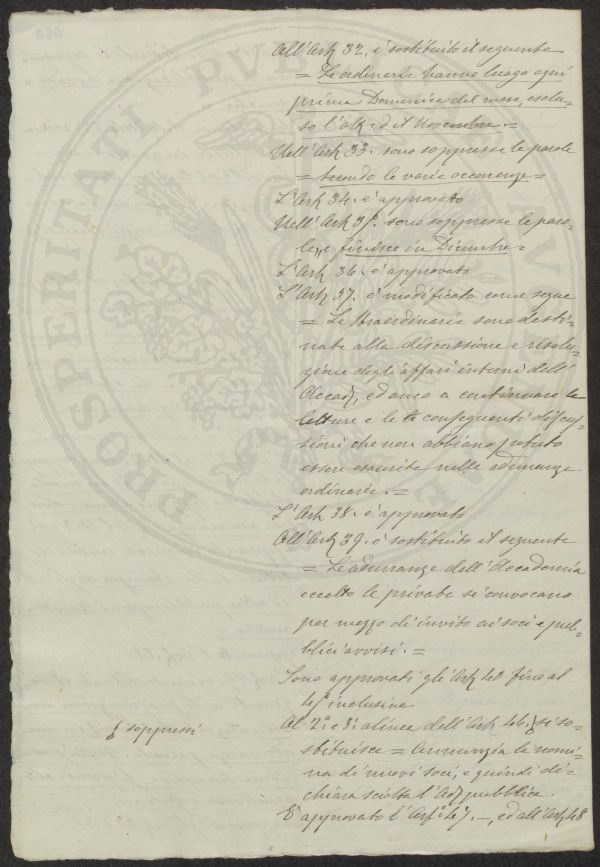 All'Art 32. è sostituito il seguente
= Le ordinarie hanno luogo ogni
prima Domenica del mese esclu-
so l'8bre ed il Novembre. =
Nell'Art 33. sono soppresse le parole
= secondo le varie occorrenze =
L'Art 34. è approvato
Nell'Art 35. sono soppresse le paro-
le = finisce in Dicembre =
L'Art 36. è approvato
L'Art 37. è modificato come segue
= Le Straordinarie sono desti-
nate alla discussione e risolu-
zione degli affari interni dell'
Accad, ed anco a continuare le
letture e le conseguenti discus-
sioni che non abbiano potuto
essere esaurite nelle adunanze
ordinarie. =
L'Art 38. è approvato
All'Art 39. è sostituito il seguente
= Le adunanze dell'Accademia
eccetto le private si convocano
per mezzo di invito ai soci e pub-
blici avvisi. =
Sono approvati gli Art 40 fino al
45 inclusive
Al 2° e 3° alinea dell'Art 46. si so-
soppressi
stituisce = Annunzia la nomi-
na di nuovi soci, e quindi di-
chiara sciolta l'Ad pubblica.
È approvato l'Art° 47. –, ed all'Art 48
PROSPERITATI PUBLICAE